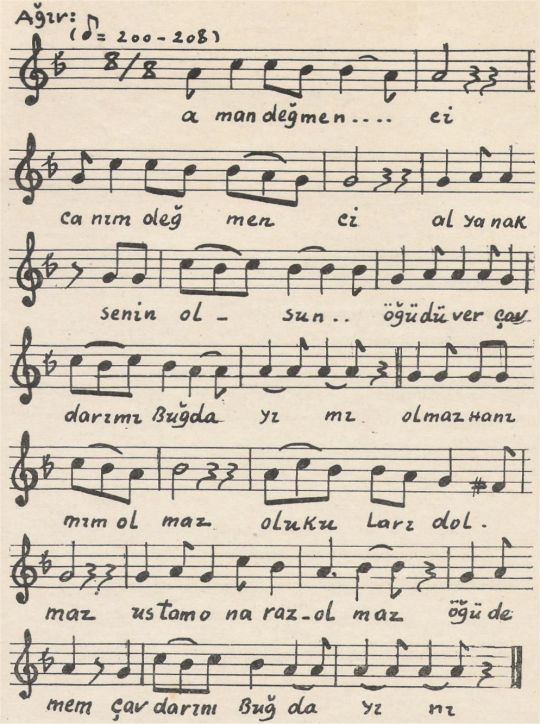 Ağır:
(♪= 200-208)
8/8
a man değmen.... ci
ca nım değ men ci al ya nak
senin ol - sun.. öğüdü ver çav
darımı Buğda yı mı olmaz Hanı
mım ol maz oluku ları dol.
maz ustamo na raz-ol maz öğü de
mem çav darını Buğ da yı nı